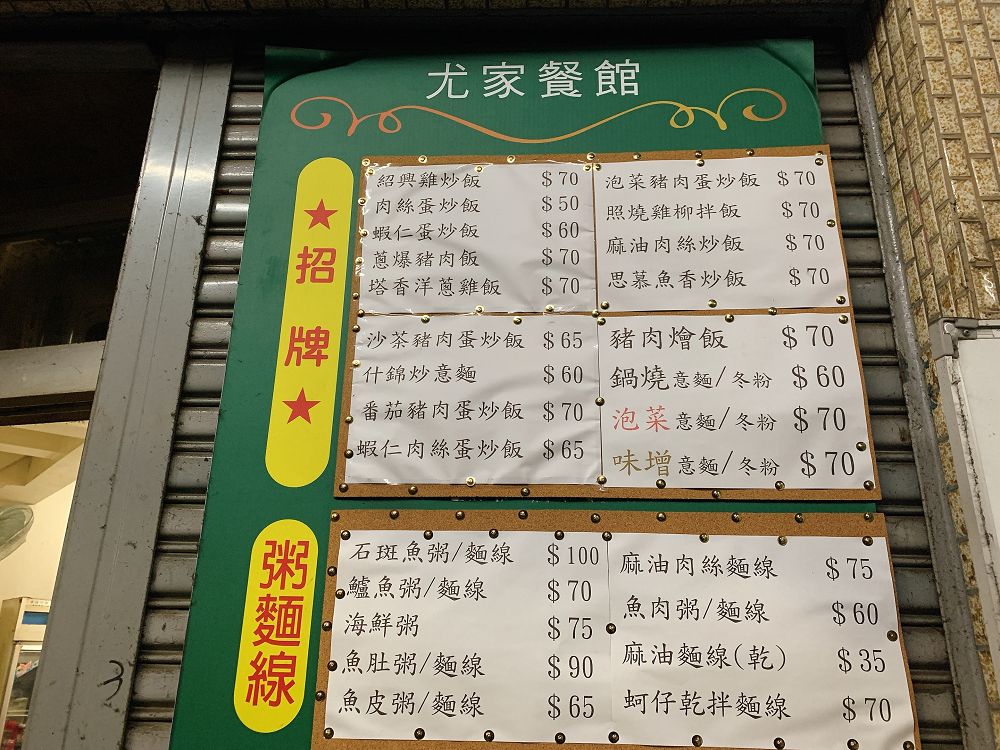 尤家餐館
★招牌★
紹興雞炒飯 $70
肉絲蛋炒飯 $50
蝦仁蛋炒飯 $60
蔥爆豬肉飯 $70
塔香洋蔥雞飯 $70
泡菜豬肉蛋炒飯 $70
照燒雞柳拌飯 $70
麻油肉絲炒飯 $70
思慕魚香炒飯 $70
沙茶豬肉蛋炒飯 $65
什錦炒意麵 $60
番茄豬肉蛋炒飯 $70
蝦仁肉絲蛋炒飯 $65
豬肉燴飯 $70
鍋燒意麵/冬粉 $60
泡菜意麵/冬粉 $70
味增意麵/冬粉 $70
粥麵線
石斑魚粥/麵線 $100
鱸魚粥/麵線 $70
海鮮粥 $75
魚肚粥/麵線 $90
魚皮粥/麵線 $65
麻油肉絲麵線 $75
魚肉粥/麵線 $60
麻油麵線(乾) $35
蚵仔乾拌麵線 $70
3